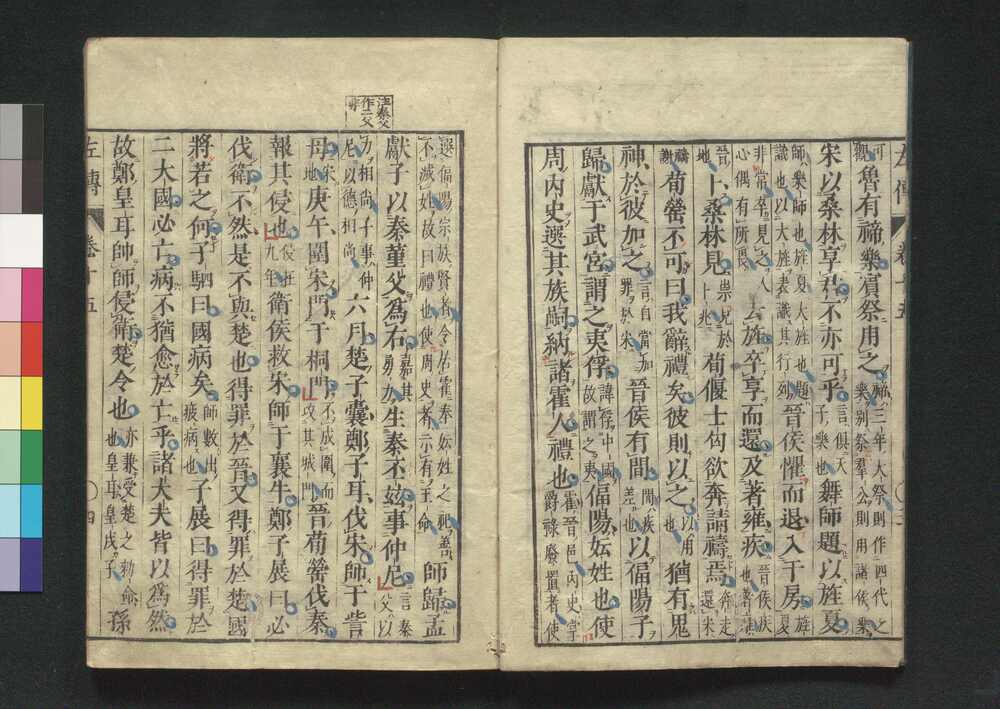 可觀魯有禘樂賓祭用之禘三年大祭則作四代之樂別祭羣公則用諸侯樂
宋以桑林享君不亦可乎言俱天子樂也舞師題以旌夏
師樂師也旌夏大旌也題識也以大旌表識其行列晉侯懼而退入于房旌夏
非常卒見之人心偶有所畏去旌卒享而還及著雍疾晉侯疾也著雍
晉地卜桑林見祟見於卜兆荀偃士匄欲奔請禱焉奔走還宋
禱謝荀罃不可曰我辭禮矣彼則以之以用猶有鬼
神於彼加之言自當加罪於宋晉侯有間間疾差也以偪陽子
歸獻于武宮謂之夷俘諱俘中國故謂之夷偪陽妘姓也使
周內史選其族嗣納諸霍人禮也霍晉邑內史掌爵祿廢置者使
選偪陽宗族賢者令居霍奉妘姓之祀善不滅姓故曰禮也使周史者示有王命師歸孟
獻子以秦堇父爲右嘉其勇力生秦丕兹事仲尼言秦父以
力相尚子事仲尼以德相尚六月楚子囊鄭子耳伐宋師于訾
母宋地庚午圍宋門于桐門不成圍而攻其城門晉荀罃伐秦
報其侵也侵在九年衛侯救宋師于襄牛鄭子展曰必
伐衛不然是不與楚也得罪於晉又得罪於楚國
將若之何子駟曰國病矣師數出疲病也子展曰得罪於
二大國必亡病不猶愈於亡乎諸大夫皆以爲然
故鄭皇耳帥師侵衛楚令也亦兼受楚之勑命也皇耳皇戌子孫
左傳 卷十五 ○四